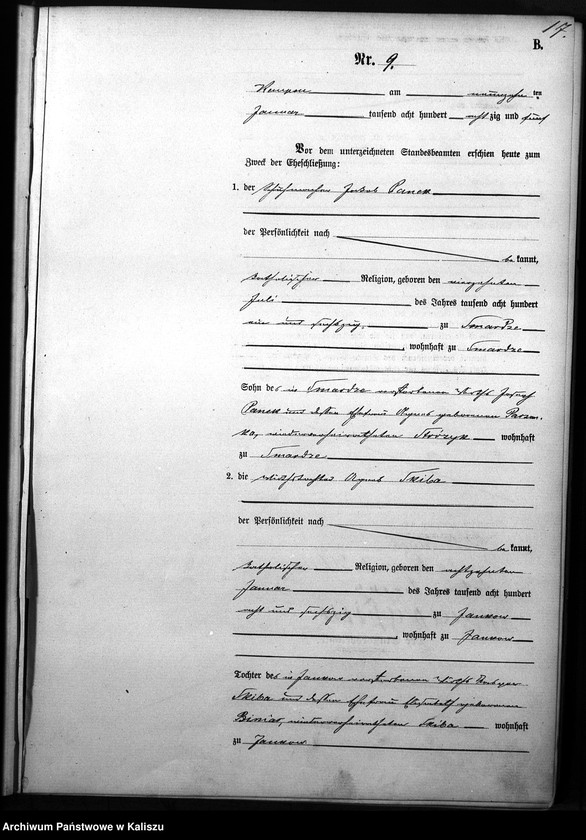 17.
B.
Nr. 9.
am ten
Januar tausend acht hundert acht zig und fünf
Vor dem unterzeichneten Standesbeamten erschien heute zum
Zweck der Eheschließung:
1. der Schuhmacher Jakob Panek
der Persönlichkeit nach
be kannt,
katholischer Religion, geboren den
Juli des Jahres tausend acht hundert
ein und sechszig zu Smardze
, wohnhaft zu Smardze
Sohn des in Smardze verstorbenen Wirths Josef
Panek und dessen Ehefrau Agnes geborenen
ka, wiederverheiratheten Storzyk wohnhaft
zu Smardze
2. die Wirthstochter Agnes Skiba
der Persönlichkeit nach
be kannt,
katholischer Religion, geboren den achtzehnten
Januar des Jahres tausend acht hundert
acht und sechszig zu Jankow
, wohnhaft zu Jankow
Tochter des in Jankow verstorbenen Wirths
Skiba und dessen Ehefrau Elisabeth geborenen
Binias, wiederverheiratheten Skiba wohnhaft
zu Jankow
Archiwum Państwowe w Kaliszu